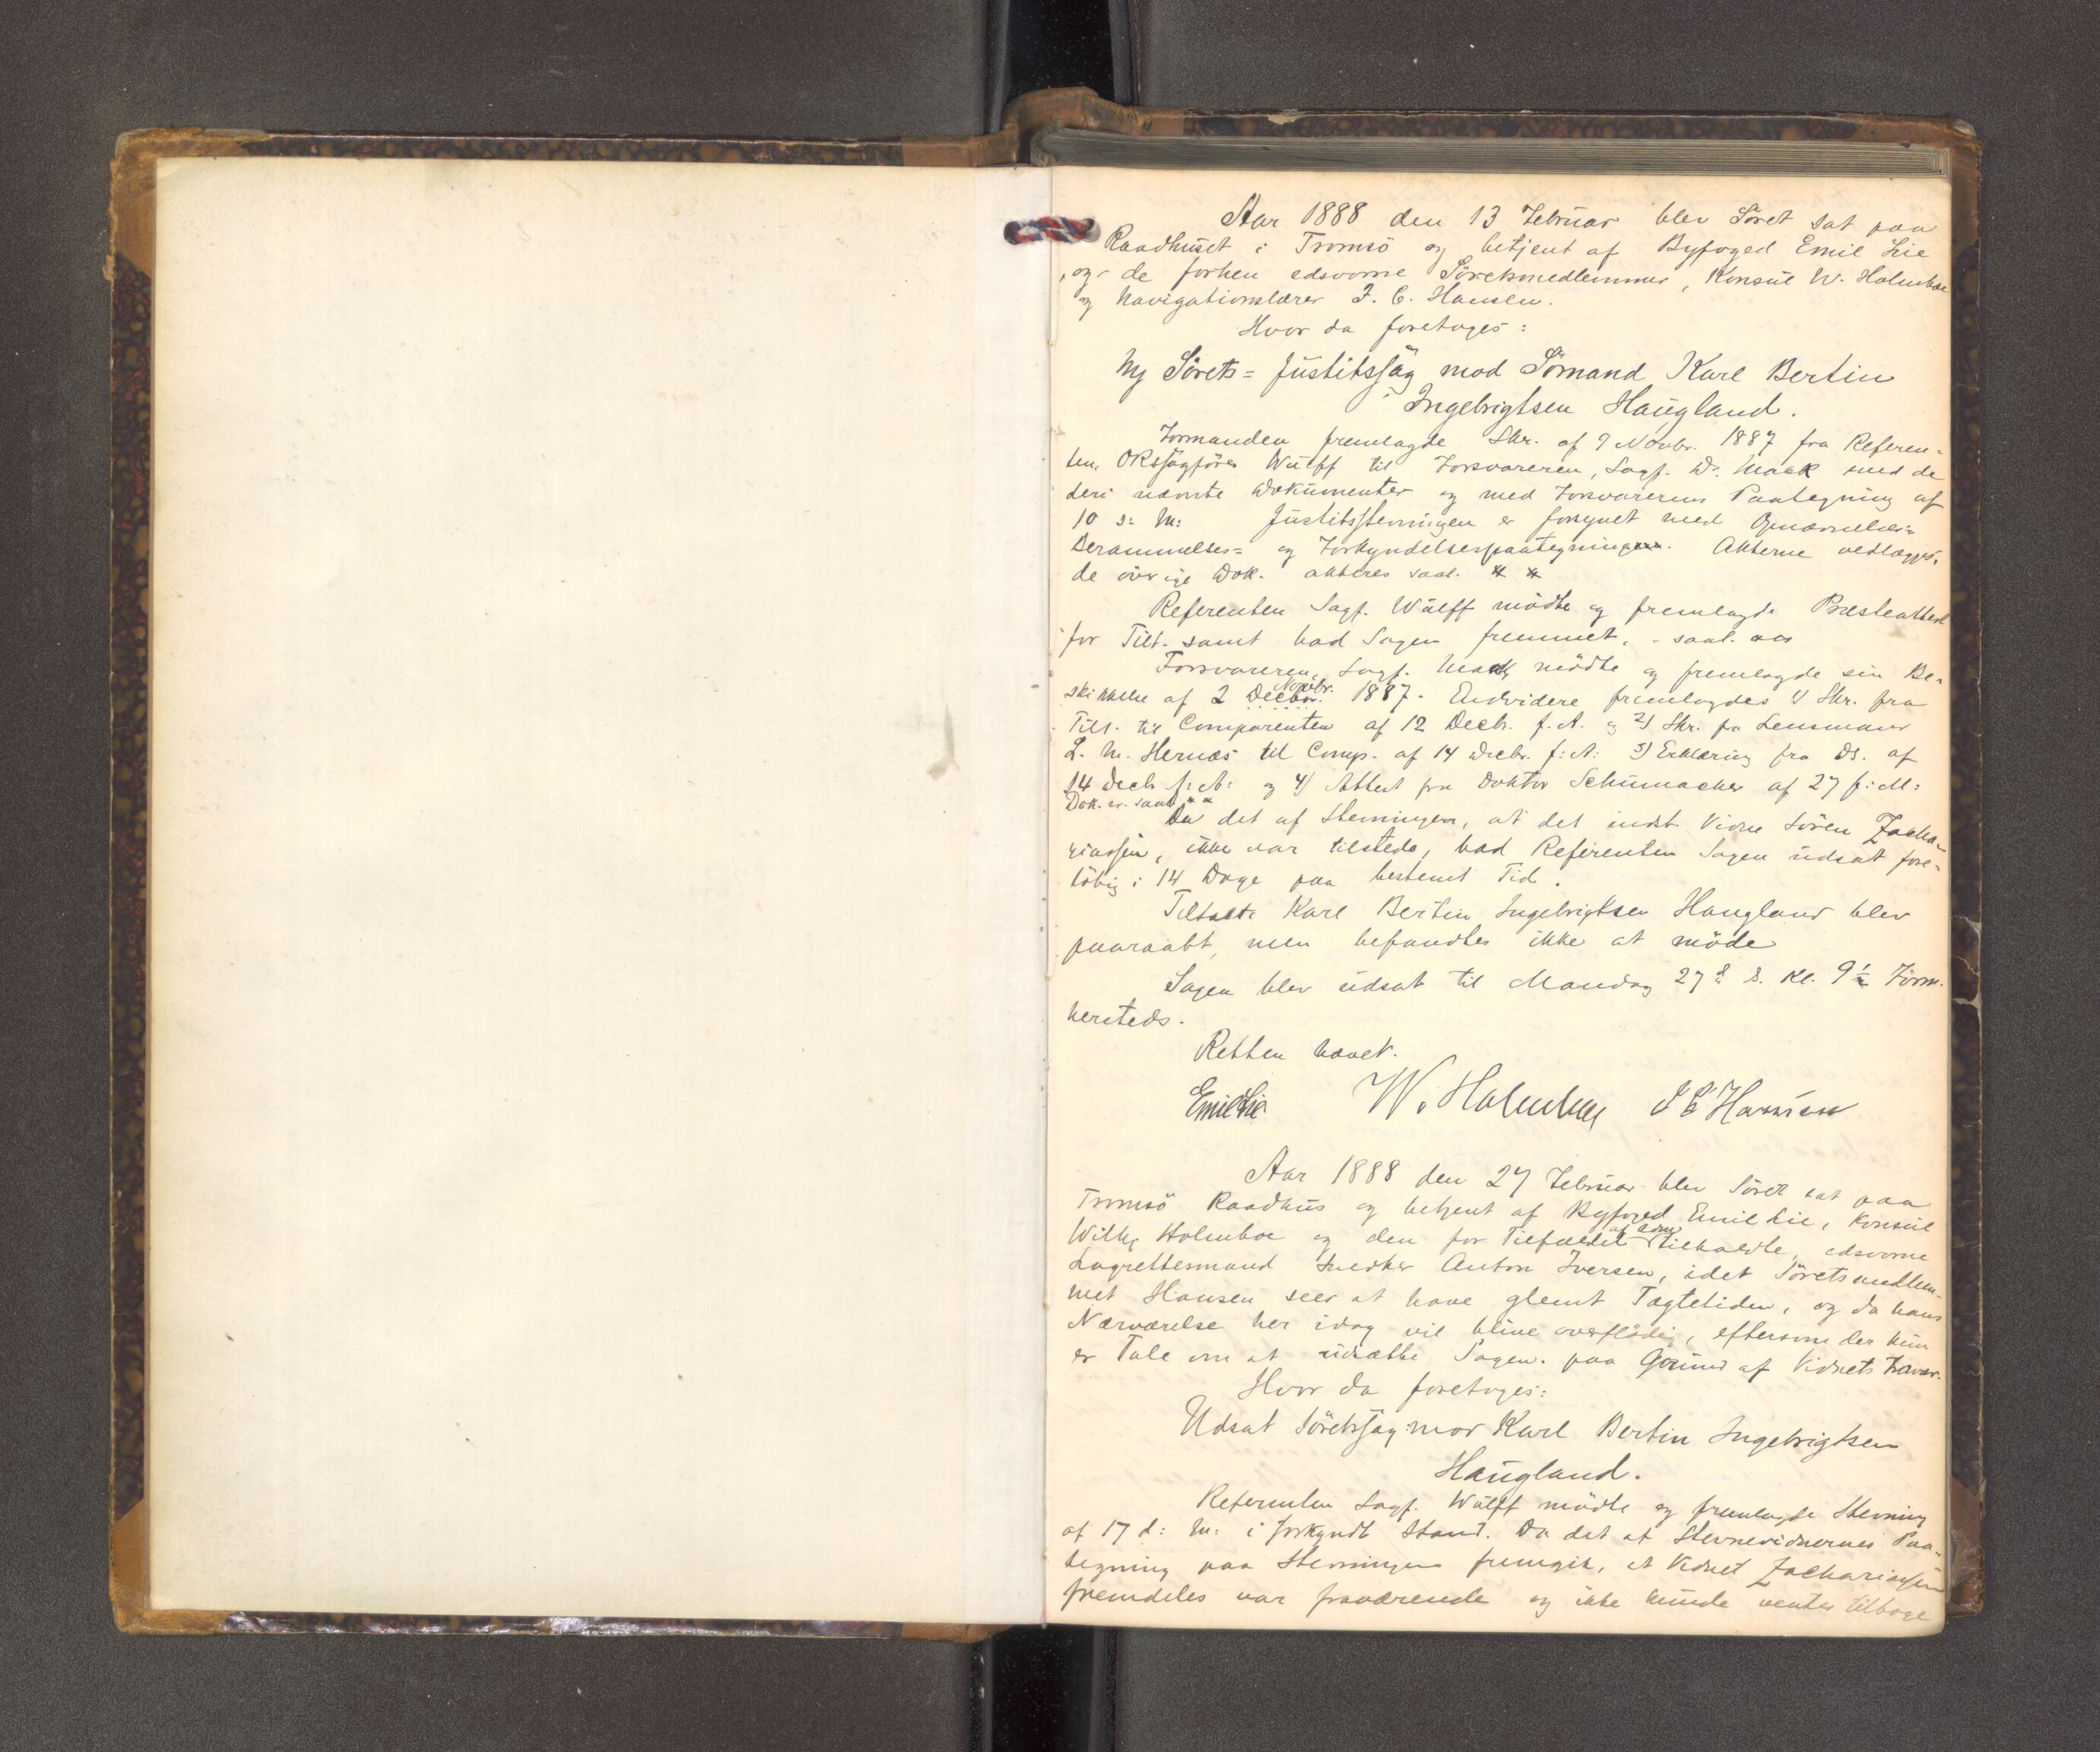 Aar 1888 den 13 Februar blev Söret sat paa
Raadhuset i Tromsö og betjent af Byfoged Emil Lie
og de forhen edsvorne Söretsmedlemmer, Konsul W. Holmboe
og Navigationslærer J. C. Hansen.
Hvor da foretoges:
Ny Sörets= Justitssag mod Sömand Karl Bertin
Ingebrigtsen Haugland.
Formanden fremlagde Skr. af 9 Novbr. 1887 fra Referen-
ten, OKssagförer Wulff til Forsvareren, Sagf. D. Mack med de
deri nævnte Dokumenter og med Forsvarerens Paategning af
10 s: M: Justitsstevningen er forsynet med Ovnævnelses=
Berammelses= og Forkyndelsespaategning. Akterne vedlægges,
de övrige Dok. akteres saal. * *
Referenten Sagf. Wulff mödte og fremlagde Præsteattest
for Tilt. samt bad Sagen fremmet, - saal.
Forsvareren, Sagf. Mack mödte og fremlagde sin Be-
skikkelse af 2 Decbr. Novbr. 1887. Endvidere fremlagdes 1) Skr. fra
Tilt. til Comparenten af 12 Decb. f. A. og 2) Skr. fra Lensmand
L. M. Hernæs til Comp. af 14 Decbr. f: A: 3) Erklæring fra Ds. af
14 Decb f: A: og 4) Attest fra Doktor Schumacher af 27 f: M:
Dok. er. saal. * *
Da det af Stevningen, at det indst. Vidne Sören Zacha-
riassen, ikke var tilstede, bad Referenten Sagen udsat fore-
löbig i 14 Dage paa bestemt Tid.
Tiltalte Karl Bertin Ingebrigtsen Haugland blev
paaraabt, men befandtes ikke at möde
Sagen blev udsat til Mandag 27 d. s. Kl. 9½ Form.
hersteds.
Retten hævet.
Emil Lie W. Holmboe J C Hansen
Aar 1888 den 27 Februar blev Söret sat paa
Tromsö Raadhus og betjent af Byfoged Emil Lie, Konsul
Wilh. Holmboe og den for Tilfældet af Adm. tilkaldte, edsvorne
Lagrettesmand Snedker Anton Iversen, idet Söretsmedlem-
met Hansen sees at have glemt Tægtetiden, og da hans
Nærværelse her idag vil blive overflödig, eftersom der kun
er Tale om at udsætte Sagen paa Grund af Vidnets Fravær.
Hvor da foretoges:
Udsat Söretssag mod Karl Bertin Ingebrigtsen
Haugland.
Referenten Sagf. Wulff mödte og fremlagde Stevning
af 17 d: M: i forkyndt Stand. Da det af Stevnevidnernes Paa-
tegning paa Stevningen fremgik, at Vidnet Zachariassen
fremdeles var fraværende og ikke kunde ventes tilbage